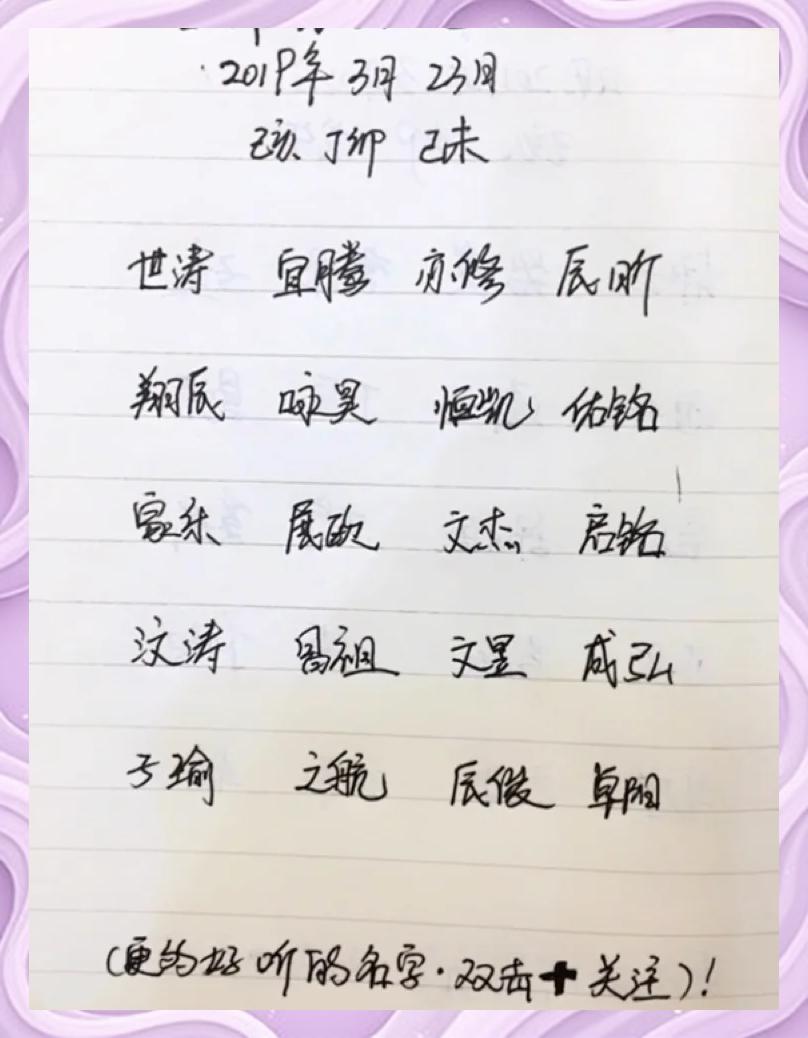 2019年 3月 23日
己亥 丁卯 己未
世涛 宜腾 亦修 辰昕
翔辰 咏昊 恒凯 佑铭
家乐 展 文杰 启铭
汶涛 昌祖 文昱 成弘
子瑜 之航 辰俊 卓阳
(更多好听的名字·双击+关注)!